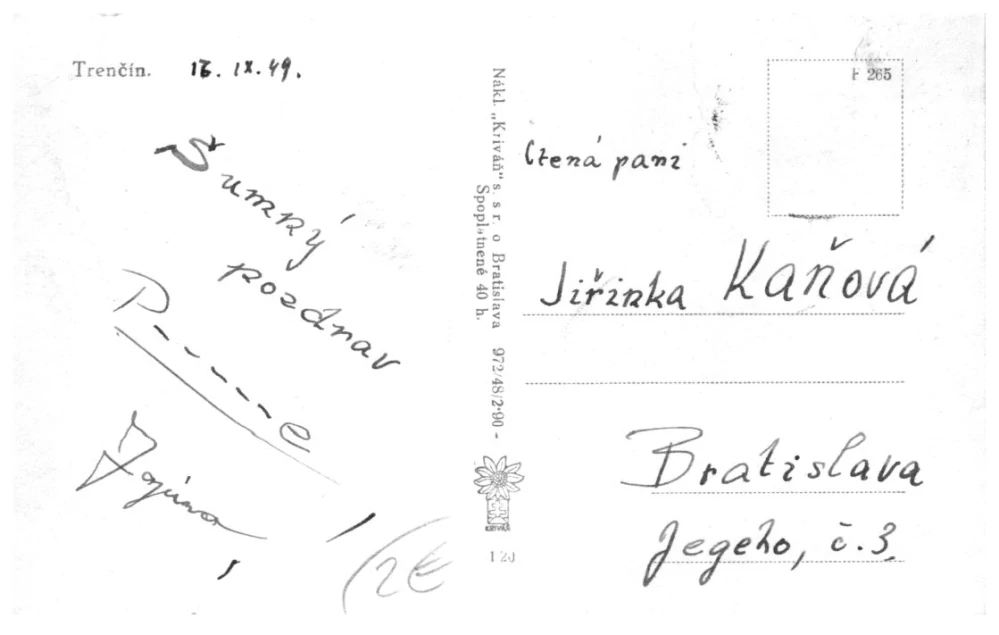 Trenčín. 16. IX. 49.
Šumný
pozdrav
P - - - - - e
Nákl. „Kriváň" s. s r. o Bratislava 972/48/2·90 -
Spoplatnené 40 h.
KRIVÁŇ
120
F 265
Ctená paní
Jiřinka Kaňová
Bratislava
Jegeho, č. 3.
(2€